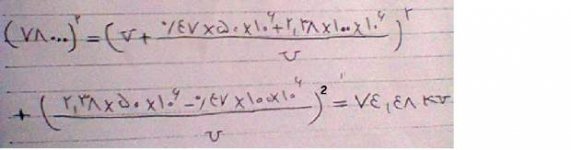 (٧٨٠٠٠)^٢ = (v + (٠٫٤٧×٥٠×١٠^٦ + ٢,٣٨×١٠٠×١٠^٦)/v)^٢
+ ((٢,٣٨×٥٠×١٠^٦ − ٠٫٤٧×١٠٠×١٠^٦)/v)^2 = ٧٤,٤٨ kv